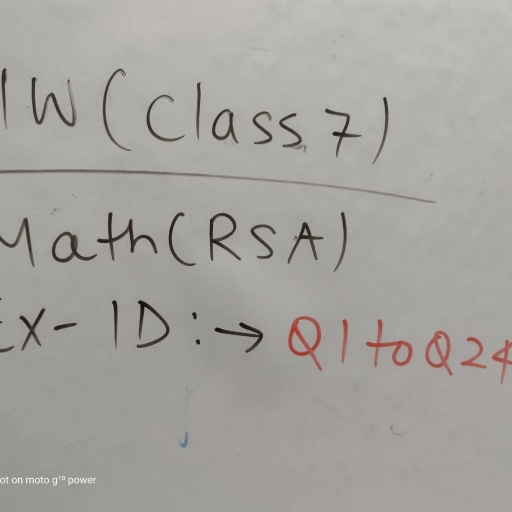 IW (Class 7)
Math (RSA)
Ex- 1D :→ Q1 to Q24
ot on moto g¹⁰ power